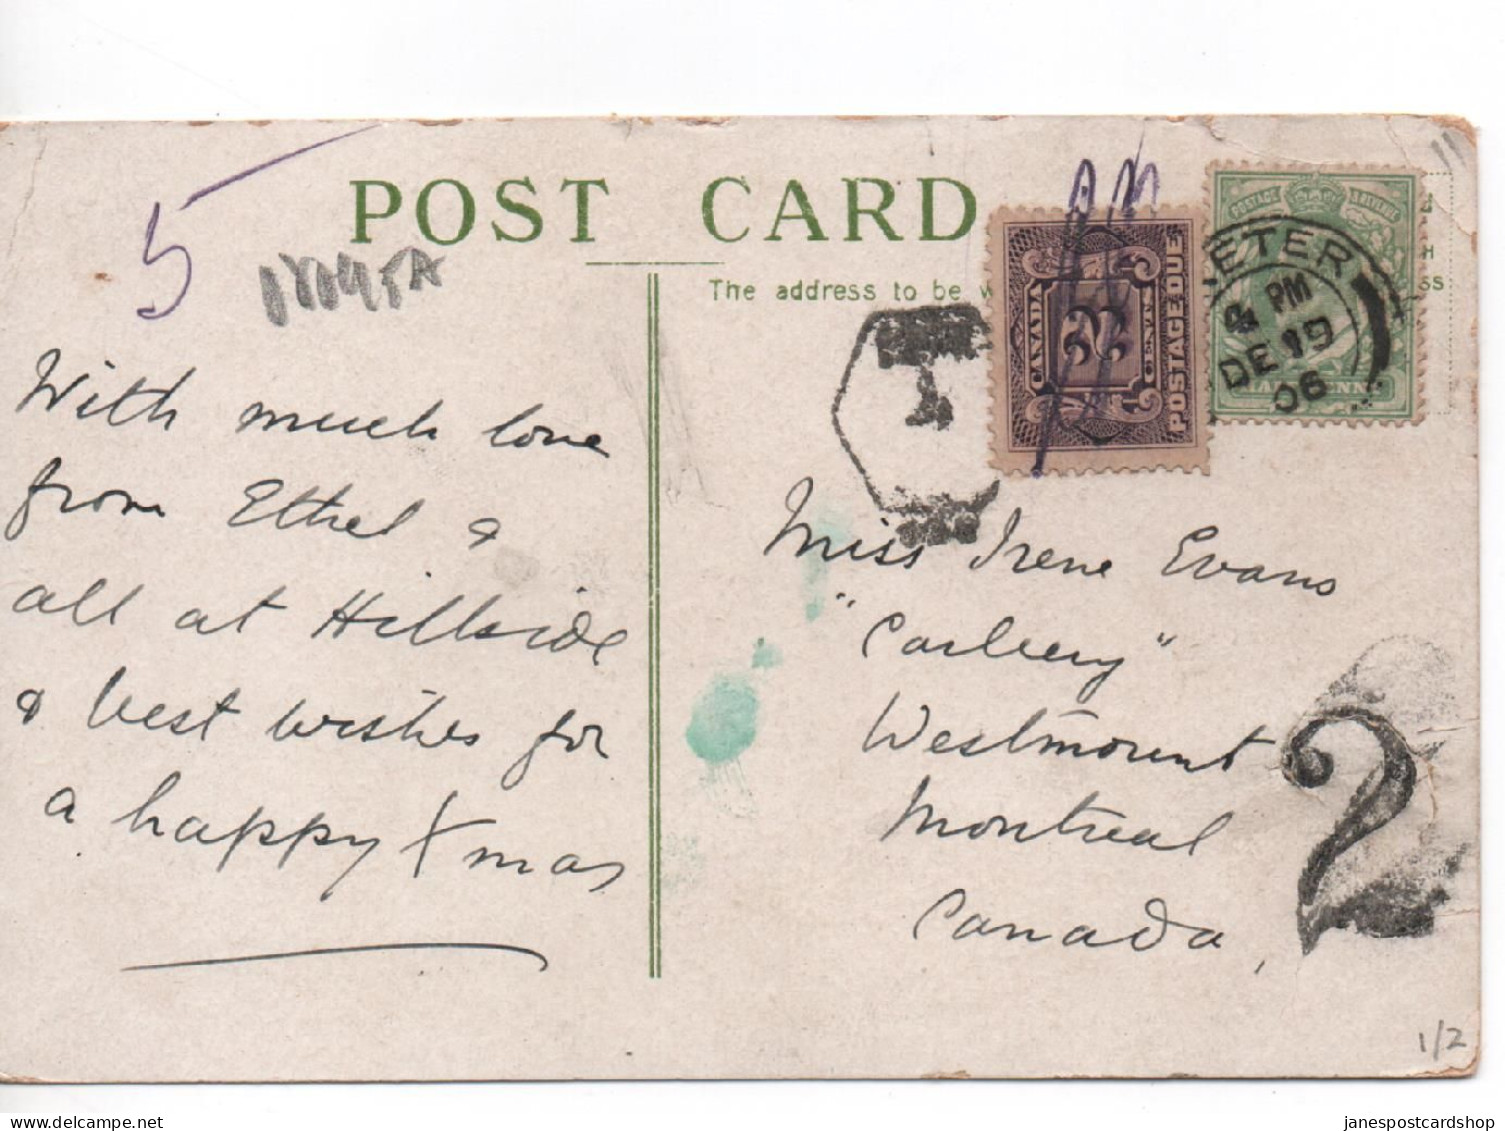 5
POST CARD
The address to be
T
CANADA
2
CENTS
POSTAGE DUE
AM
POSTAGE REVENUE
EXETER
4 PM
DE 19
06
With much love
from Ethel &
all at Hillside
& best wishes for
a happy Xmas
Miss Irene Evans
"Carbery"
Westmount
Montreal
Canada,
2
1/2
delcampe.net
janespostcardshop